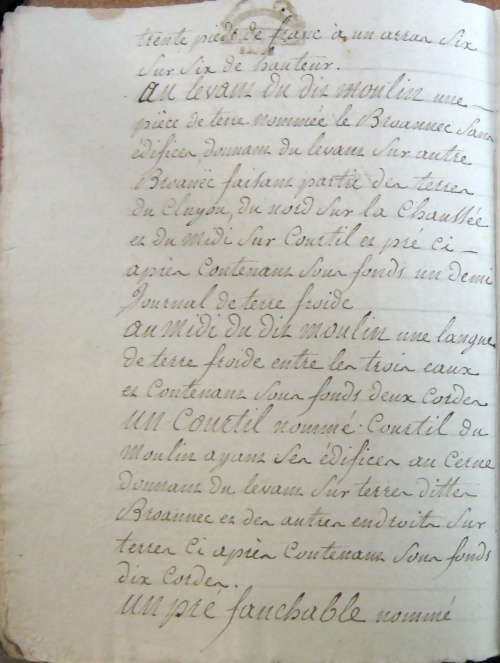 trente pieds de franc à un arras six
sur six de hauteur.
au levant du dit moulin une
pièce de terre nommée le Broannec sans
édifices donnant du levant sur autre
Broanëc faisant partie des terres
du Cluyou, du nord sur la chaussée
et du midi sur Courtil et pré ci
après contenant sous fonds un demi
Journal de terre froide
au midi du dit moulin une langue
de terre froide entre les trois eaux
et contenant sous fonds deux cordes
un Courtil nommé Courtil du
moulin ayant ses édifices au cerne
donnant du levant sur terres dittes
Broannec et des autres endroits sur
terres ci après contenant sous fonds
dix cordes.
un pré fauchable nommé